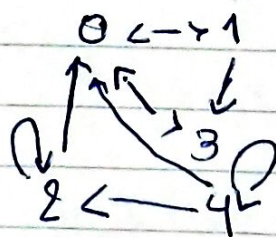 0 1
3
2 4